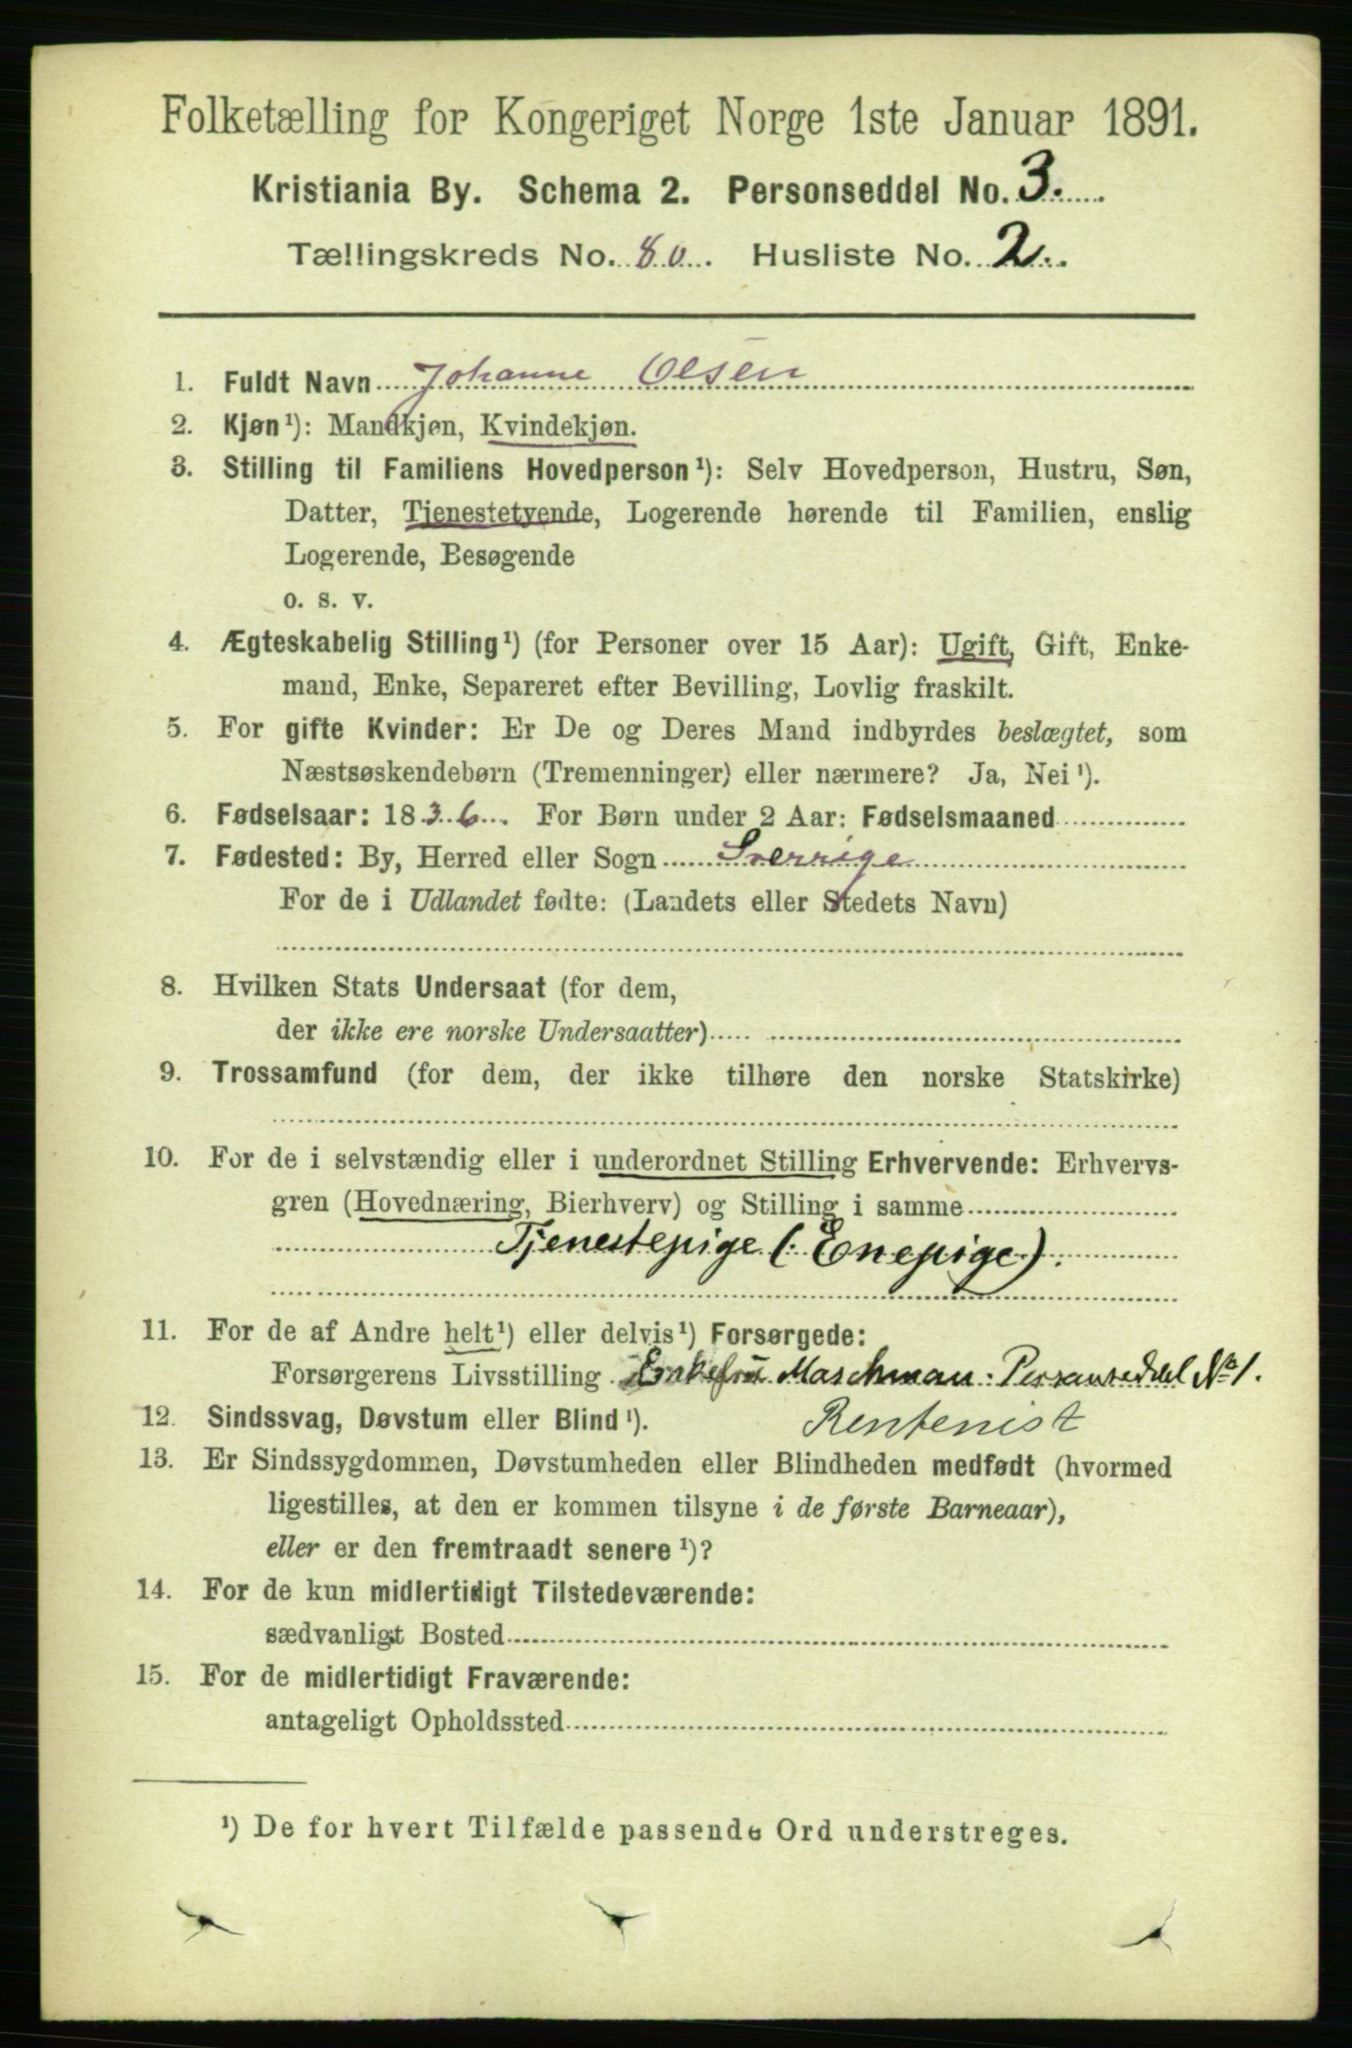 Folketælling for Kongeriget Norge 1ste Januar 1891.
Kristiania By. Schema 2. Personseddel No. 3.
Tællingskreds No. 80. Husliste No. 2.
1. Fuldt Navn Johanne Olsen
2. Kjøn¹): Mandkjøn, Kvindekjøn.
3. Stilling til Familiens Hovedperson¹): Selv Hovedperson, Hustru, Søn,
Datter, Tjenestetyende, Logerende hørende til Familien, enslig
Logerende, Besøgende
o. s. v.
4. Ægteskabelig Stilling¹) (for Personer over 15 Aar): Ugift, Gift, Enke-
mand, Enke, Separeret efter Bevilling, Lovlig fraskilt.
5. For gifte Kvinder: Er De og Deres Mand indbyrdes beslægtet, som
Næstsøskendebørn (Tremenninger) eller nærmere? Ja, Nei¹).
6. Fødselsaar: 1836. For Børn under 2 Aar: Fødselsmaaned
7. Fødested: By, Herred eller Sogn Sverrige
For de i Udlandet fødte: (Landets eller Stedets Navn)
8. Hvilken Stats Undersaat (for dem,
der ikke ere norske Undersaatter)
9. Trossamfund (for dem, der ikke tilhøre den norske Statskirke)
10. For de i selvstændig eller i underordnet Stilling Erhvervende: Erhvervs-
gren (Hovednæring, Bierhverv) og Stilling i samme
Tjenestepige (Enepige).
11. For de af Andre helt¹) eller delvis¹) Forsørgede:
Forsørgerens Livsstilling Enkefru Maschman. Personseddel No 1.
12. Sindssvag, Døvstum eller Blind¹). Rentenist
13. Er Sindssygdommen, Døvstumheden eller Blindheden medfødt (hvormed
ligestilles, at den er kommen tilsyne i de første Barneaar),
eller er den fremtraadt senere¹)?
14. For de kun midlertidigt Tilstedeværende:
sædvanligt Bosted
15. For de midlertidigt Fraværende:
antageligt Opholdssted
¹) De for hvert Tilfælde passende Ord understreges.